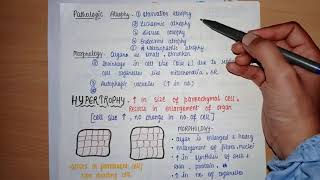 Pathologic Atrophy - ① Starvation atrophy
② Ischaemic atrophy
③ Disuse atrophy
④
⑤ atrophy.
Morphology - Organs is small, shrunken
① Shrinkage in cell size (due to ↓ due to
cell organelles like mitochondria, ER
② Autophagic vacuoles (↑ in no.)
HYPERTROPHY - ↑ in size of parenchymal cell,
Results in enlargement of organ
[cell size ↑, no change in no. of cells]
MORPHOLOGY:
organ is enlarged & heavy
enlargement of fibre, nuclei
↑ in synthesis of DNA &
RNA, protein
↑ no. of organelles